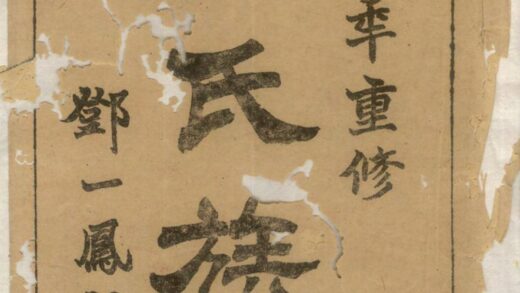 年重修
氏族
鄧一鳳